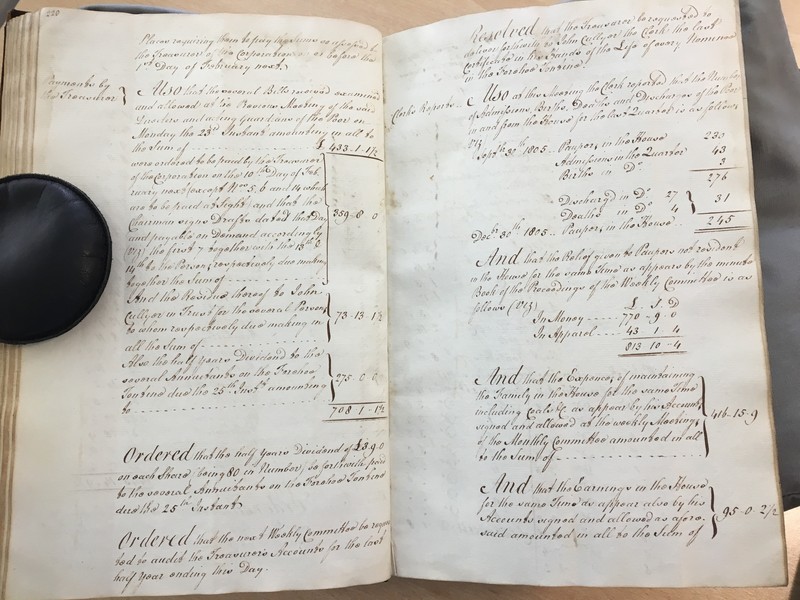 220
Places requiring them to pay the Sums so assessed to
the Treasurer of the Corporation on or before the
1st Day of February next.
Payments by
the Treasurer
Also that the several Bills received examined
and allowed at the Review Meeting of the said
Directors and acting Guardians of the Poor on
Monday the 23d Instant amounting in all to
the Sum of £ 433-1-1½
were ordered to be paid by the Treasurer
of the Corporation on the 10th Day of Feb-
ruary next (except Nos 5, 6 and 14 which
are to be paid at Sight) and that the
Chairman signs Drafts dated that Day
and payable on Demand accordingly
(Viz) the first 7 together with the 13th &
14th to the Persons respectively due making
together the Sum of
359-8-0
And the Residue thereof to John
Cullyer in Trust for the several Persons
to whom respectively due making in
all the Sum of
73-13-1½
Also the half Years Dividend to the
several Annuitants on the Forehoe
Tontine due the 25th Inst. amounting
to
275-0-0
708-1-1½
Ordered that the half Years Dividend of £3-9-0
on each Share being 80 in Number, so forthwith paid
to the several Annuitants on the Forehoe Tontine
due the 25th Instant
Ordered that the next Weekly Committee be reques-
ted to audit the Treasurer's Accounts for the last
half Year ending this Day.
Resolved that the Treasurer be requested to
deliver forthwith to John Cullyer the Clerk the last
Certificate in the Hands of the Life of every Nominee
in the Forehoe Tontine.
Clerks Reports
Also at this Meeting the Clerk reported that the Number
of Admissions, Births, Deaths and Discharges of the Poor
in and from the House for the last Quarter is as follows
Viz
Septr 30th 1805 .. Paupers in the House 230
Admissions in the Quarter 43
Births in Do. 3
276
Discharg'd in Do 27
Deaths in Do 4
31
Decr 30th 1805 .. Paupers in the House 245
And that the Relief given to Paupers not resident
in the House for the same Time as appears by the minute
Book of the Proceedings of the Weekly Committee is as
follows (Viz)
£ S D
In Money 770-9-0
In Apparel 43 1 4
813 10-4
And that the Expences of maintaining
the Family in the House for the same Time
including Coals &c. as appear by his Accounts
signed and allowed at the weekly Meetings
of the Monthly Committee amounted in all
to the Sum of
416-15-9
And that the Earnings in the House
for the same Time as appear also by his
Accounts signed and allowed as afore-
said amounted in all to the Sum of
95-0-2½